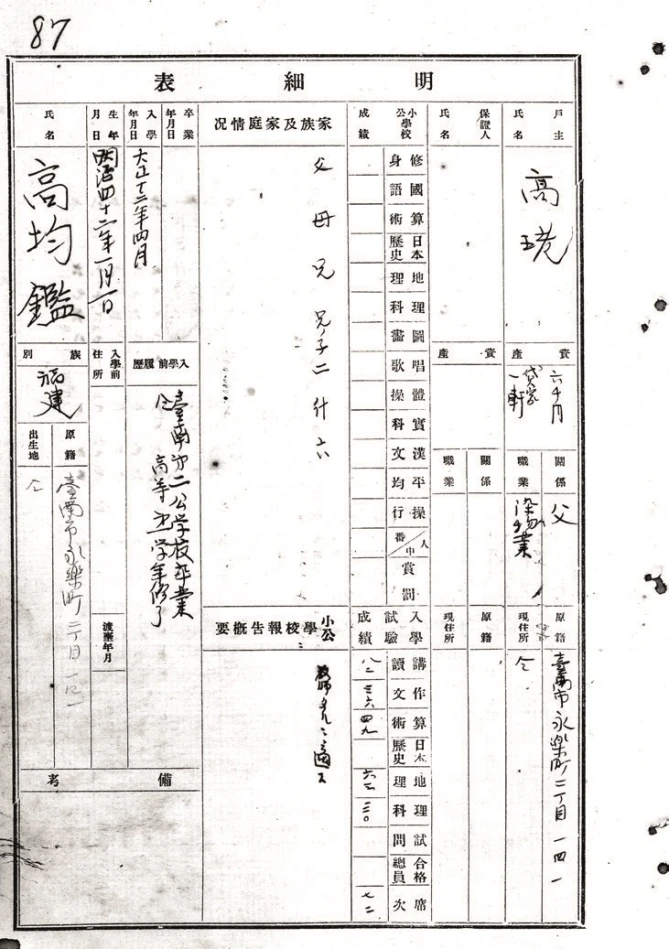 87
明細表
戸主
氏名
高
資産
六千円
貸家
一軒
關係
父
職業
染物業
原籍
臺南市永樂町二丁目一四一
現住所
仝
保證人
氏名
資産
關係
職業
原籍
現住所
小公學校
成績
修身
國語
算術
日本歷史
地理
理科
圖畫
唱歌
體操
實科
漢文
平均
操行
人中
番
賞罰
入學試驗
成績
講讀
八二
作文
三六
算術
四九
日本歷史
地理
六三
理科
三〇
試問
合格總員
席次
七二
家族及家庭情況
父母兄
小公學校報告槪要
卒業年月日
入學年月日
大正十二年四月
入學前履歷
臺南第二公学校卒業
仝
高等
学年修了
生年月日
明治四十二年一月一日
入學前住所
渡臺年月
氏名
高均鑑
族別
福建
原籍
臺南市永樂町二丁目一四一
出生地
仝
備考